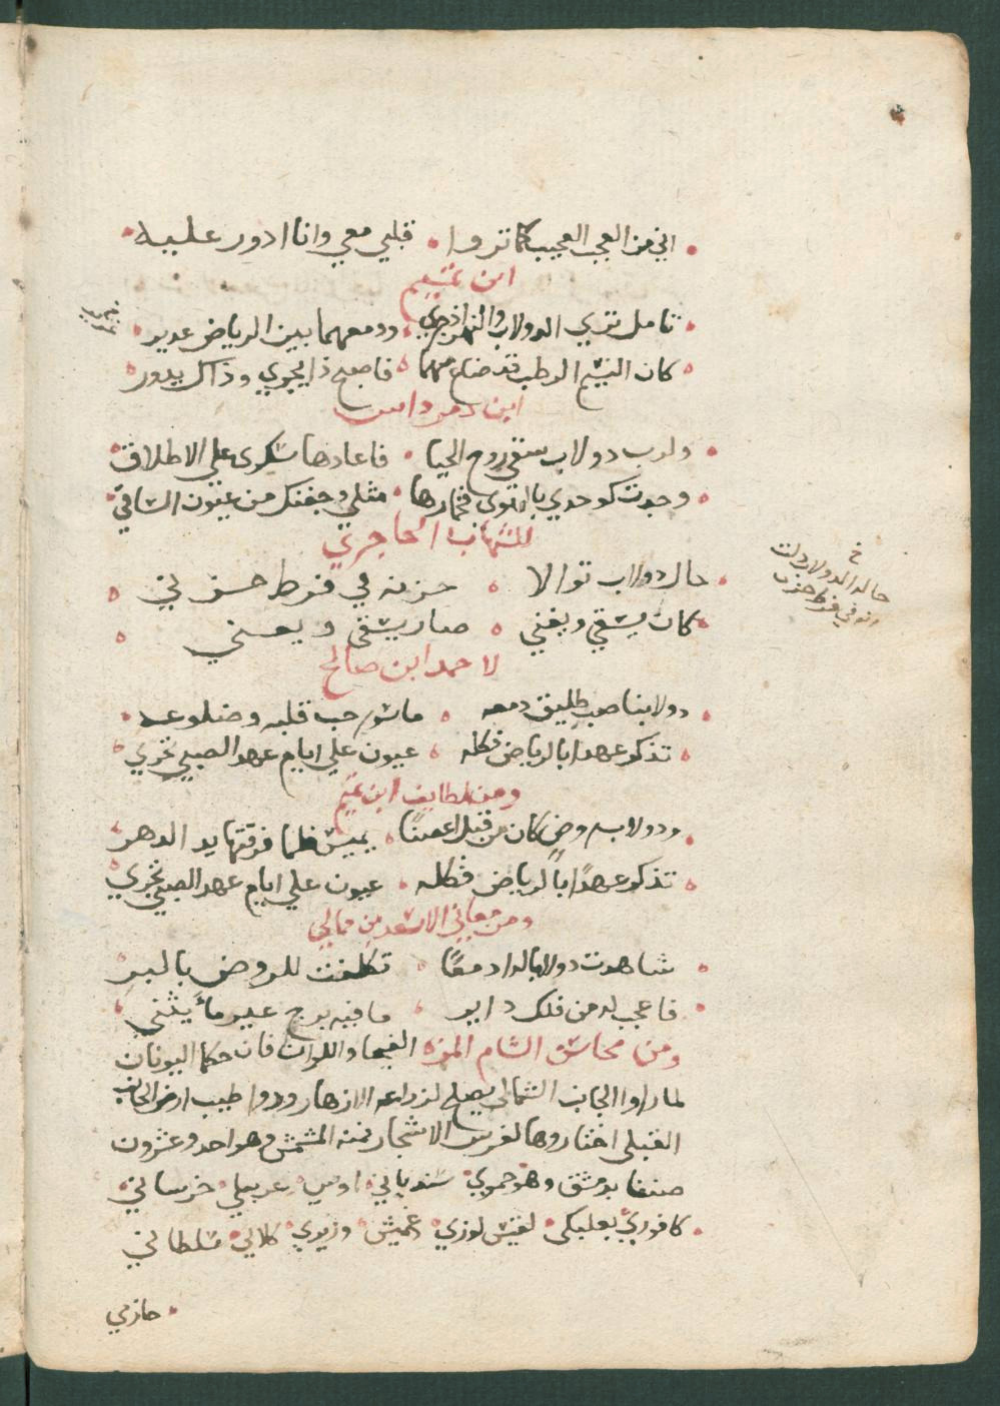 اني من العجب العجيب كما تروا • قلبي معي وانا ادور عليه
ابن تميم
تامل تري الدولاب والنهر اذ جري • ودمعهما بين الرياض غدير
كان النسيم الرطب قد ضاع منهما • فاصبح ذا يجري وذاك يدور
ابن دمرداس
ولرب دولاب سقي روح الحيا • فاعادها سكري علي الاطلاق
وجدت كوجدي بالهوي فخمارها • مثلي وجفنك من عيون الساقي
للشهاب الحاجري
حال دولاب توالا • حزنه في فرط حسني
كان يسقي ويغني • صار يسقي ويعني
خ
حاله الدولاب دلت
انه في فرط حزن
لاحمد ابن صالح
دولابنا صب طليق دمعه • ماسور حب قلبه وضلوعه
تذكر عهدا بالرياض فكله • عيون علي ايام عهد الصبي تجري
ومن لطايف ابن تميم
ودولاب روض كان من قبل اغصنًا • يميس فلما فرقتها يد الدهر
تذكر عهدًا بالرياض فكله • عيون علي ايام عهد الصبي تجري
ومن معاني الاسعد بن مماتي
شاهدت دولابا له ادمعًا • تكلفت للروض بالبر
فاعجب له من فلك داير • ما فيه برج غير ماء يثني
ومن محاسن الشام المزه الفيحا واللوان فان حكما اليونان
لما راوا الجانب الشمالي يصلح لزراعه الازهار وردوا طيب ارض الجانب
القبلي اختاروها لغرس الاشجار فمنه المشمش وهو احد وعشرون
صنفا بدمشق وهو حموي سندياني اويس عربيلي خرساني
كافوري بعلبكي لقيس لوزي دغميش وزيري كلابي سلطاني
حازمي